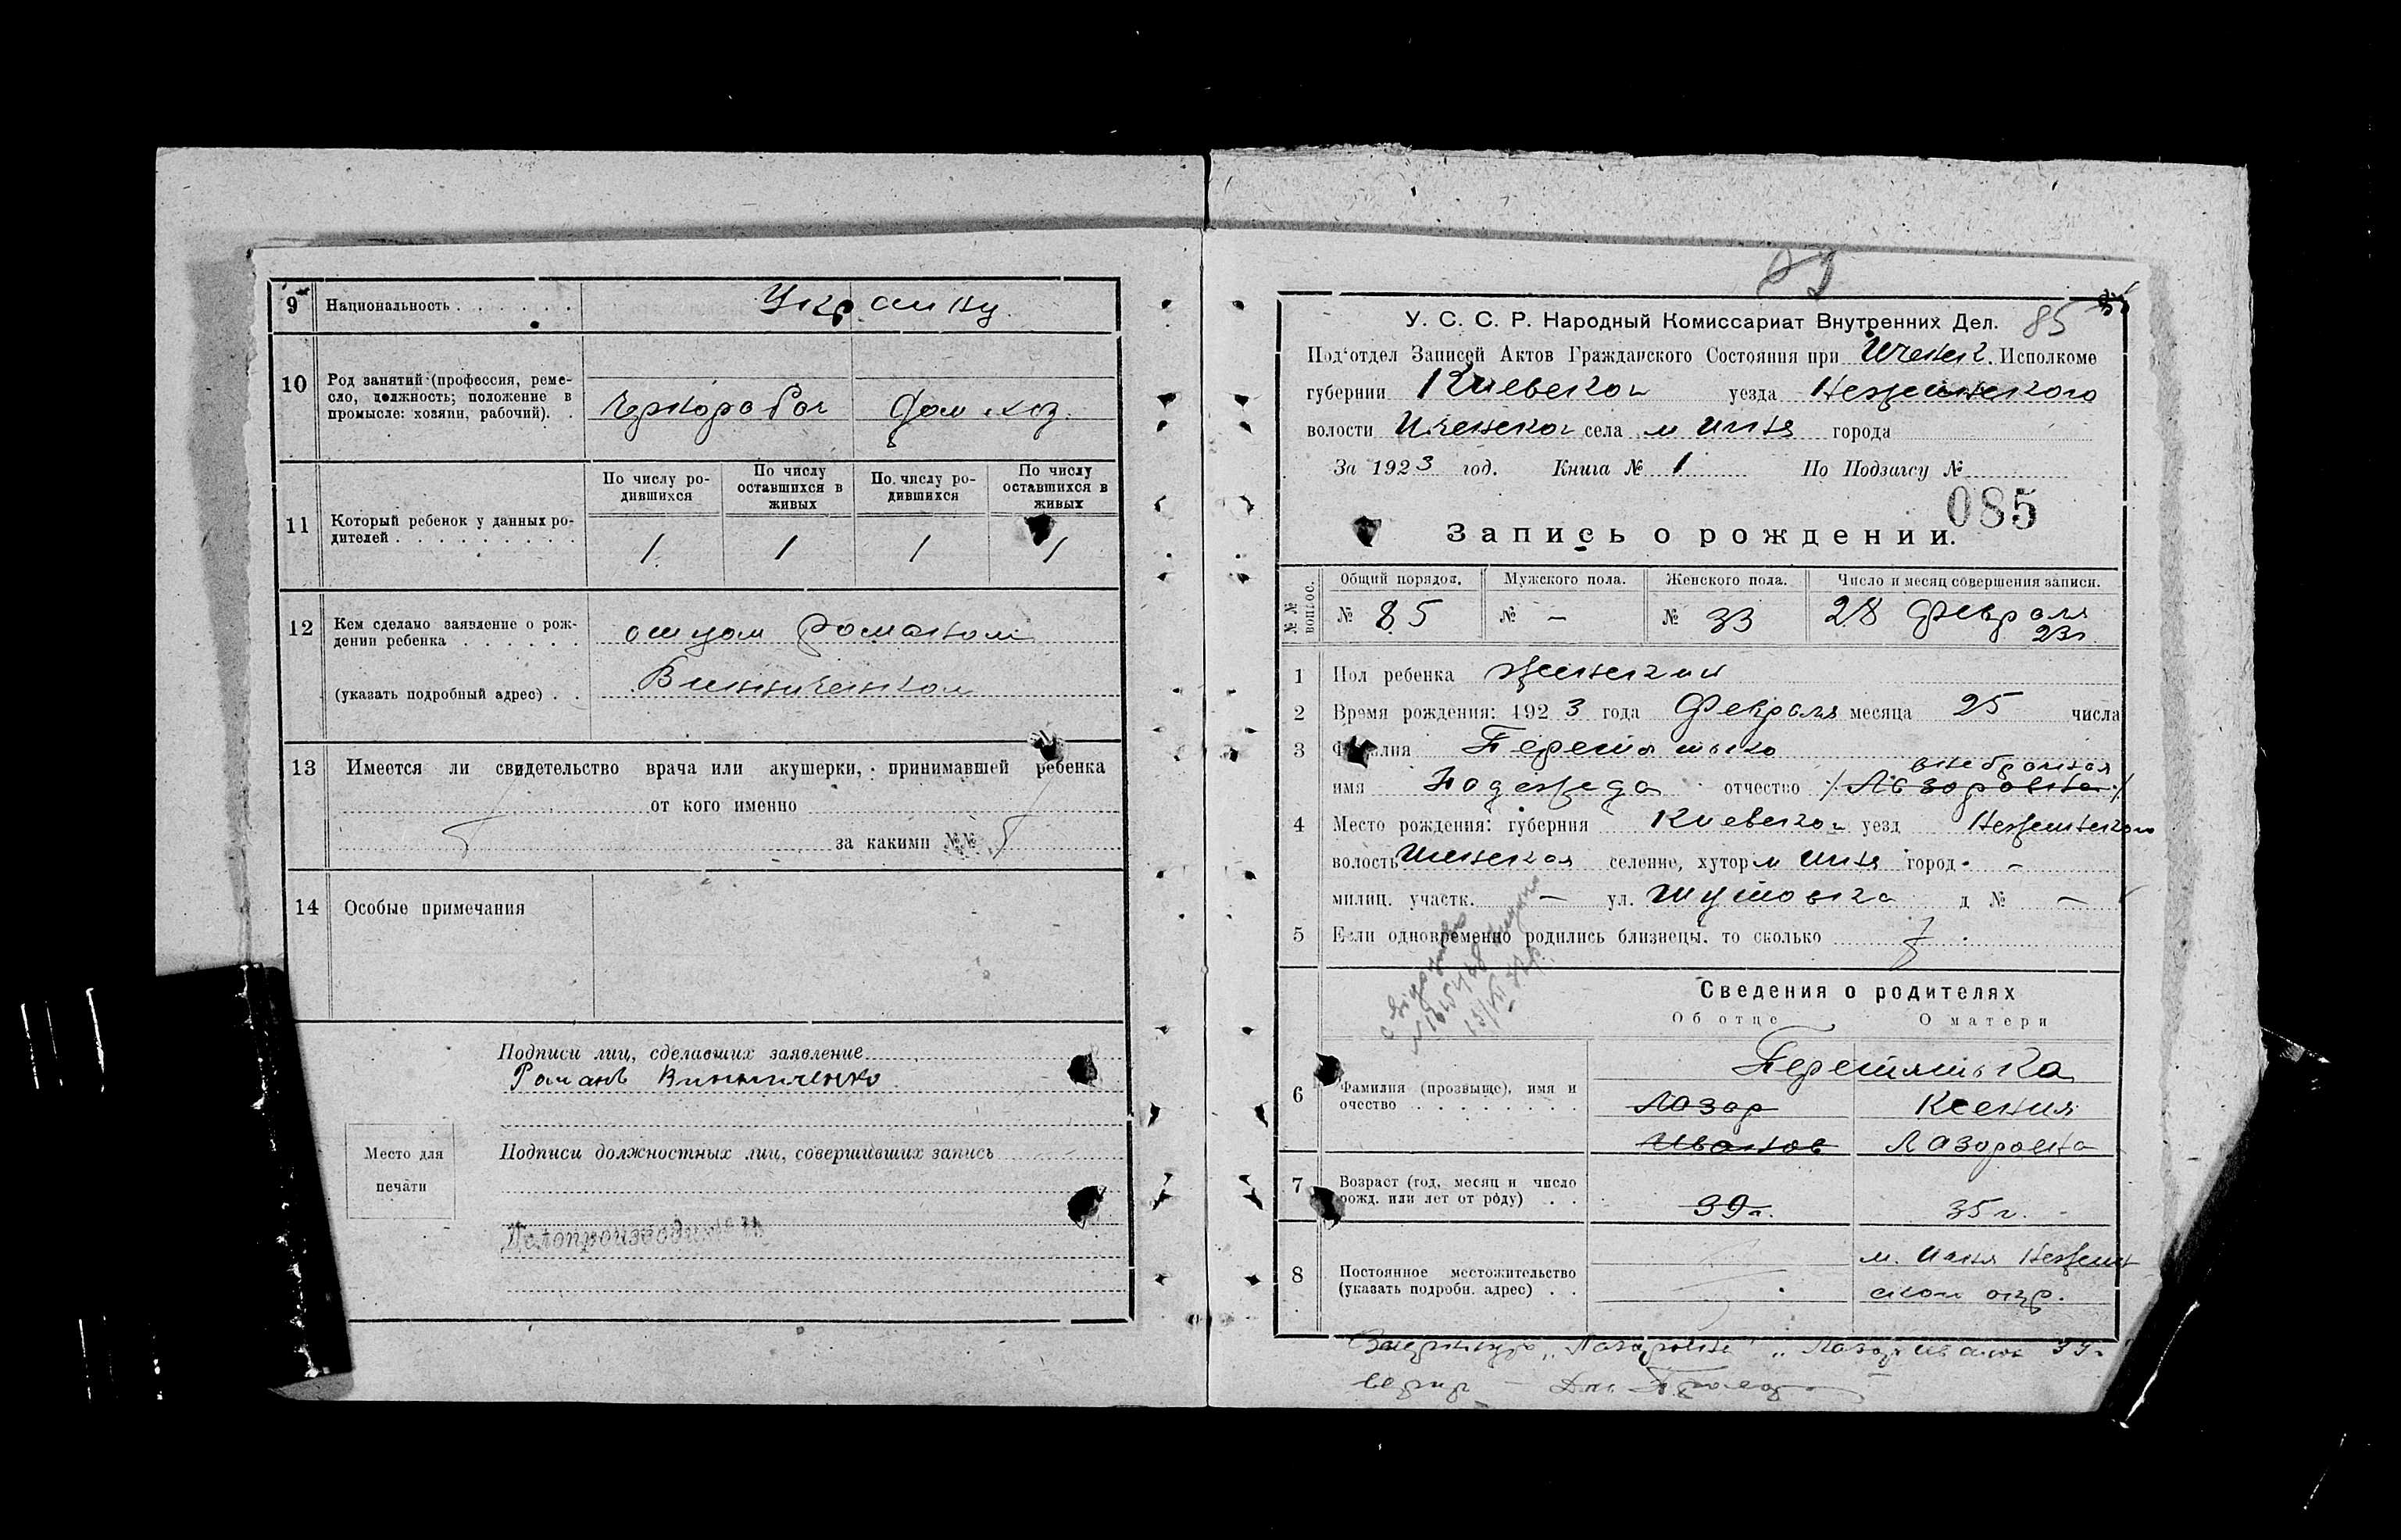 9 Национальность . . . . . . Украинцы
10 Род занятий (профессия, реме-
сло, должность; положение в
промысле: хозяин, рабочий). .
Чернорабоч Дом. хоз.
11 Который ребенок у данных ро-
дителей . . . . . . . . .
По числу ро-
дившихся
По числу
оставшихся в
живых
По числу ро-
дившихся
По числу
оставшихся в
живых
1 1 1 1
12 Кем сделано заявление о рож-
дении ребенка . . . . . .
(указать подробный адрес) . .
отцом Романом
Винниченком
13 Имеется ли свидетельство врача или акушерки, принимавшей ребенка
от кого именно
за какими №№
14 Особые примечания
Подписи лиц, сделавших заявление
Романъ Винниченко
Место для
печати
Подписи должностных лиц, совершивших запись
Делопроизводитель
85
У. С. С. Р. Народный Комиссариат Внутренних Дел.
Под'отдел Записей Актов Гражданского Состояния при Иченск. Исполкоме
губернии Киевской уезда Неженского
волости Иченской села м Ичня города
За 1923 год. Книга № 1 По Подзагсу №
085
Запись о рождении.
№№ вопрос.
Общий порядов. Мужского пола. Женского пола. Число и месяц совершения записи.
№ 85 № — № 33 28 февраля
23г
1 Пол ребенка женский
2 Время рождения: 1923 года Февраля месяца 25 числа
3 Фамилия Перетятько
внебрачная
имя Надежда отчество Лазаровна
4 Место рождения: губерния Киевской уезд Неженского
волость Иченская селение, хутор м Ичня город —
милиц. участк. — ул. Шутовка д № —
5 Если одновременно родились близнецы, то сколько
Сведения о родителях
Об отце О матери
6 Фамилия (прозвыще), имя и
очество . . . . . . . .
Перетятька
Лазар Ксения
Иванов Лазаровна
7 Возраст (год, месяц и число
рожд. или лет от роду) . .
39г. 35г.
8 Постоянное местожительство
(указать подробн. адрес) . .
м. Ичня Неженс
ской окр.
"Лазаровна" "Лазар Иванов 39г